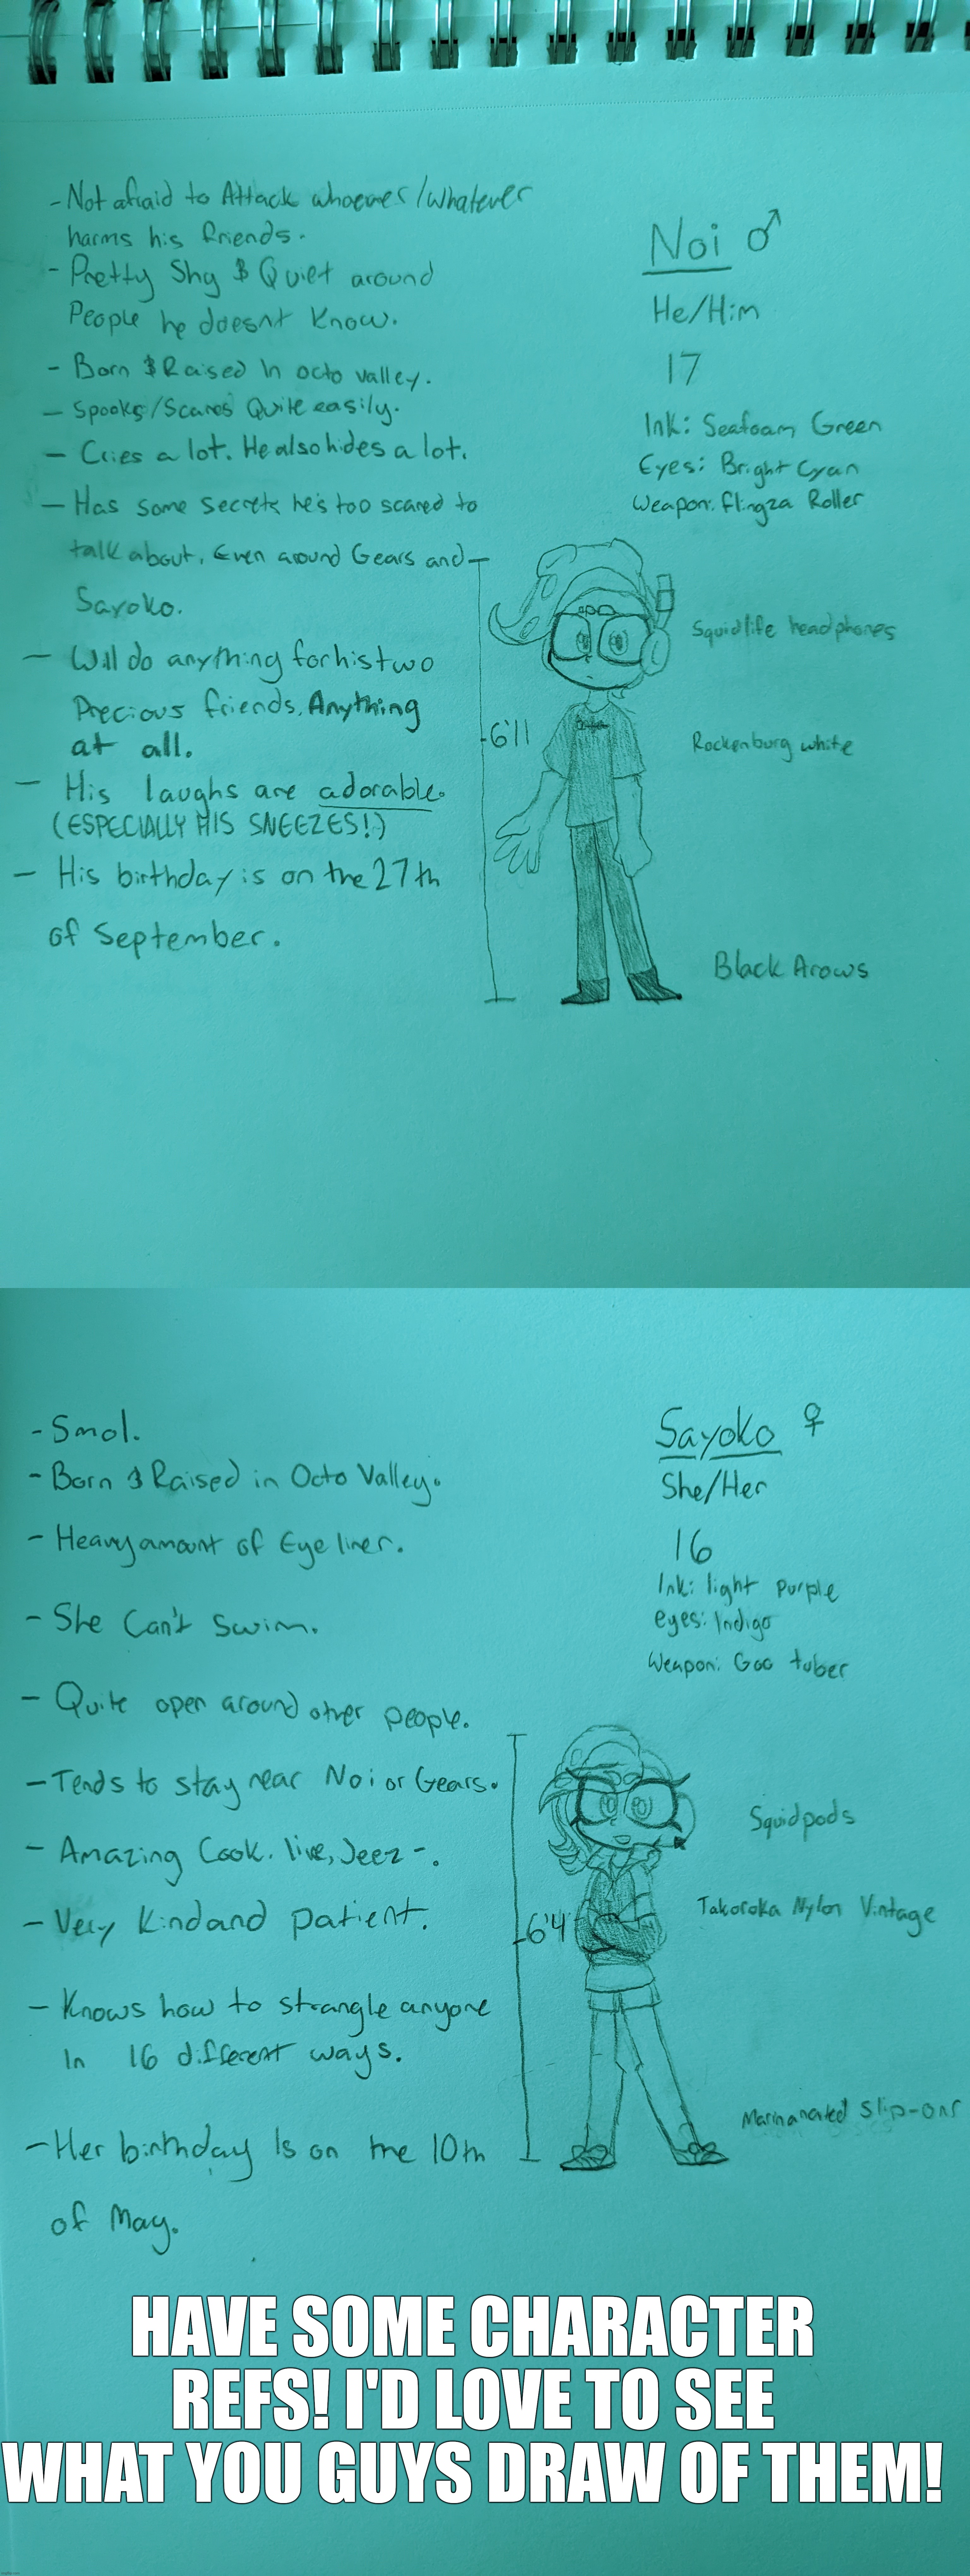 - Not afraid to Attack whoever/whatever
harms his friends.
- Pretty Shy & Quiet around
People he doesnt Know.
- Born & Raised In octo valley.
- Spooks/Scares Quite easily.
- Cries a lot. He also hides a lot.
- Has some secrets he's too scared to
talk about, Even around Gears and
Sayoko.
- Will do anything for his two
Precious friends. Anything
at all.
- His laughs are adorable.
(ESPECIALLY HIS SNEEZES!)
- His birthday is on the 27th
of September.
Noi ♂
He/Him
17
Ink: Seafoam Green
Eyes: Bright Cyan
Weapon: Flingza Roller
Squidlife headphones
6'11
Rockenburg white
Black Arows
- Smol.
- Born & Raised in Octo Valley.
- Heavy amount of Eye liner.
- She Can't Swim.
- Quite open around other people.
- Tends to stay near Noi or Gears.
- Amazing Cook. like, Jeez -.
- Very Kind and patient.
- Knows how to strangle anyone
In 16 different ways.
- Her birthday Is on the 10th
of May.
Sayoko ♀
She/Her
16
Ink: light purple
eyes: Indigo
Weapon: Goo tuber
Squidpods
6'4
Takoroka Nylon Vintage
Marinanated Slip-ons
HAVE SOME CHARACTER
REFS! I'D LOVE TO SEE
WHAT YOU GUYS DRAW OF THEM!